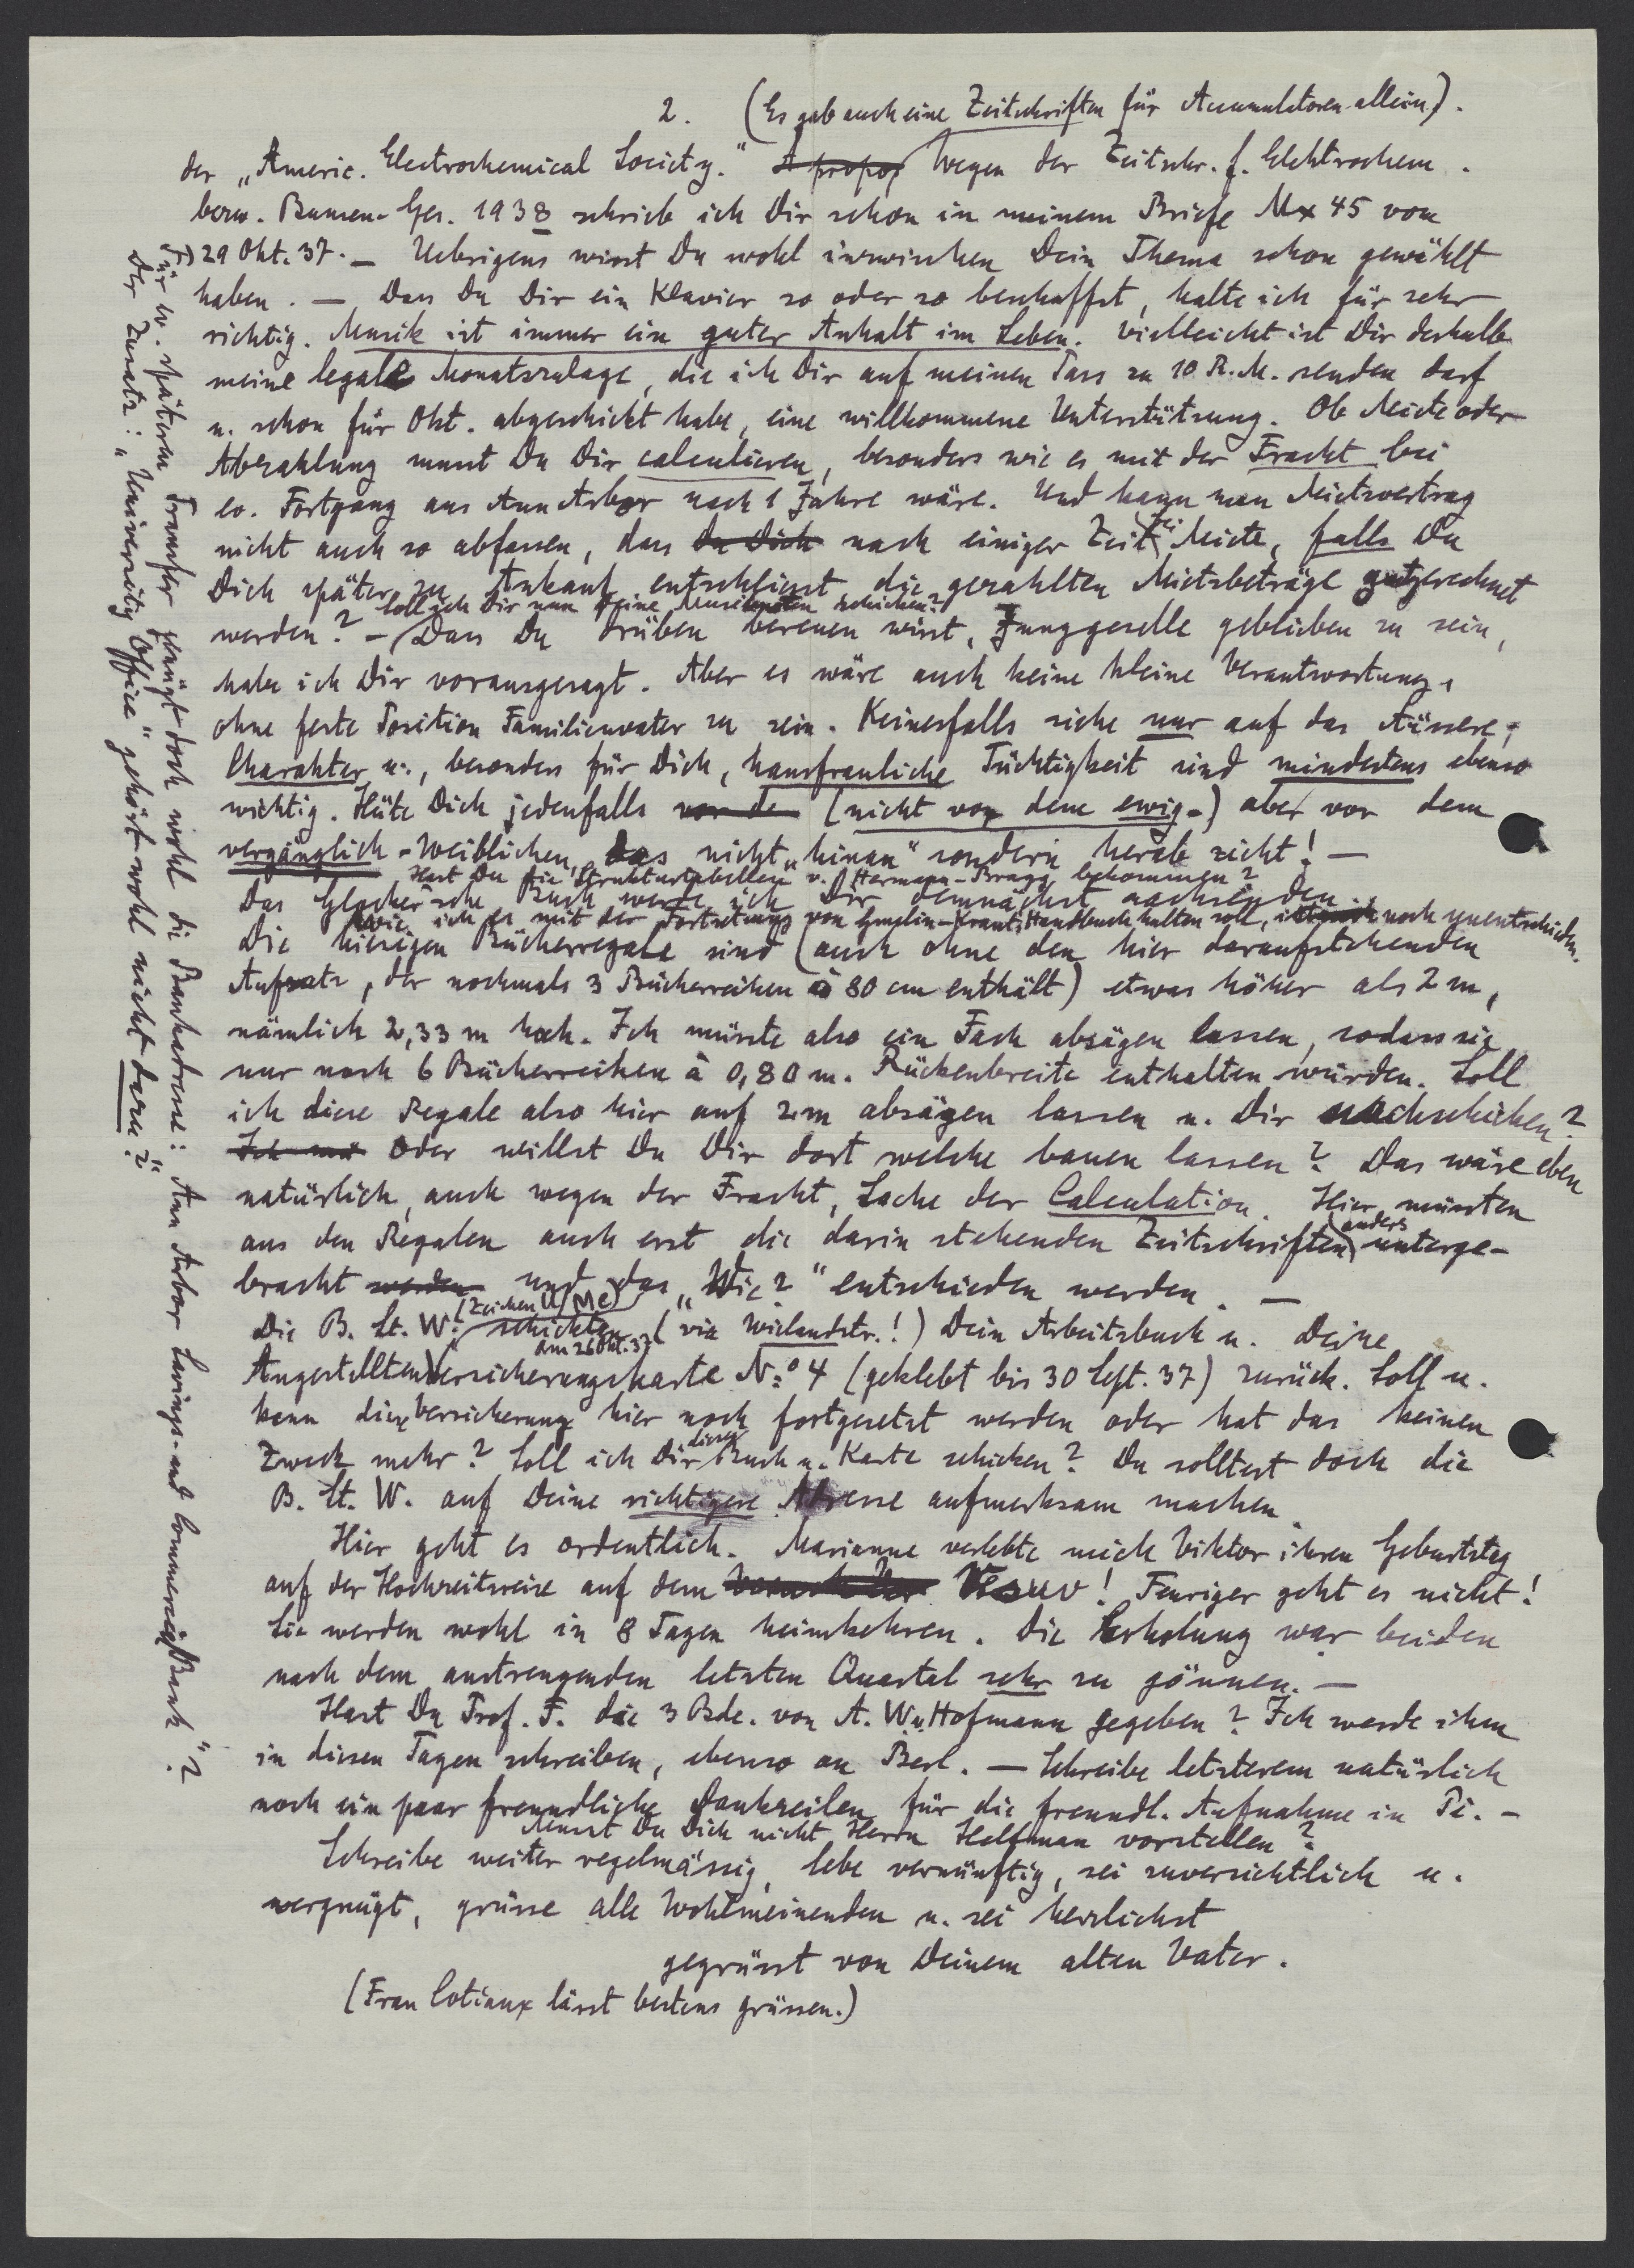 2. (Es gab auch eine Zeitschriften für Accumulatoren allein).
der „Americ. Electrochemical Society." A propos Wegen der Zeitschr. f. Elektrochem.
bezw. Bunsen-Ges. 1938 schrieb ich Dir schon in meinem Briefe Mx 45 vom
29 Okt. 37. — Uebrigens wirst Du wohl inzwischen Dein Thema schon gewählt
haben. — Dass Du Dir ein Klavier so oder so beschaffst, halte ich für sehr
richtig. Musik ist immer ein guter Anhalt im Leben. Vielleicht ist Dir deshalb
meine legale Monatszulage, die ich Dir auf meinen Pass zu 10 R.M. senden darf
u. schon für Okt. abgeschickt habe, eine willkommene Unterstützung. Ob Miete oder
Abzahlung musst Du Dir calculieren, besonders wie es mit der Fracht bei
ev. Fortgang aus Ann Arbor nach 1 Jahre wäre. Und kann man Mietsvertrag
nicht auch so abfassen, dass Du Dich nach einiger Zeit Miete, falls Du
Dich später zu Ankauf entschliesst die gezahlten Mietsbeträge gutgerechnet
Soll ich Dir nun Deine Musiknoten schicken?
werden? — Dass Du drüben bereuen wirst, Junggeselle geblieben zu sein,
habe ich Dir vorausgesagt. Aber es wäre auch keine kleine Verantwortung,
ohne feste Position Familienvater zu sein. Keinesfalls siehe nur auf das Äussere;
Charakter u., besonders für Dich, hausfrauliche Tüchtigkeit sind mindestens ebenso
wichtig. Hüte Dich jedenfalls vor de (nicht vor dem ewig-) aber vor dem
vergänglich-Weiblichen, das nicht „hinan" sondern herab zieht! —
Hast Du die Strukturtabellen v. Hermann-Bragg bekommen?
Das Glocker'sche Buch werde ich Dir demnächst nachsenden.
Wie ich es mit der Fortsetzung von Gmelin-Kraut's Handbuch halten soll, ist noch unentschieden.
Die hiesigen Bücherregale sind (auch ohne den hier daraufstehenden
Aufsatz, der nochmals 3 Bücherreihen à 80 cm enthält) etwas höher als 2 m,
nämlich 2,33 m hoch. Ich müsste also ein Fach absägen lassen, sodass sie
nur noch 6 Bücherreihen à 0,80 m. Rückenbreite enthalten würden. Soll
ich diese Regale also hier auf 2 m absägen lassen u. Dir nachschicken?
Ich mü Oder willst Du Dir dort welche bauen lassen? Das wäre eben
natürlich, auch wegen der Fracht, Sache der Calculation. Hier müssten
aus den Regalen auch erst die darin stehenden Zeitschriften anders unterge-
bracht werden und das „Wie?" entschieden werden. —
Die B. St. W. (Zeichen U/Me) schickten am 26 Okt. 37 (via Wielandstr.!) Dein Arbeitsbuch u. Deine
Angestelltenversicherungskarte No. 4 (geklebt bis 30 Sept. 37) zurück. Soll u.
kann diese Versicherung hier noch fortgesetzt werden oder hat das keinen
Zweck mehr? Soll ich Dir dieses Buch u. Karte schicken? Du solltest doch die
B. St. W. auf Deine richtigere Adresse aufmerksam machen.
Hier geht es ordentlich. Marianne verlebte mit Viktor ihren Geburtstag
auf der Hochzeitsreise auf dem Vesuv! Feuriger geht es nicht!
Sie werden wohl in 8 Tagen heimkehren. Die Erholung war beiden
nach dem anstrengenden letzten Quartal sehr zu gönnen. —
Hast Du Prof. F. die 3 Bde. von A. W. v. Hofmann gegeben? Ich werde ihm
in diesen Tagen schreiben, ebenso an Berl. — Schreibe letzterem natürlich
noch ein paar freundliche Dankzeilen für die freundl. Aufnahme in Pi. —
Musst Du Dich nicht Herrn Helfman vorstellen?
Schreibe weiter regelmässig, lebe vernünftig, sei zuversichtlich u.
vergnügt, grüsse alle Wohlmeinenden u. sei herzlichst
gegrüsst von Deinem alten Vater.
(Frau Cotiaux lässt bestens grüssen.)
Für ev. späteren Transfer genügt doch wohl die Bankadresse: Ann Arbor Savings- and Commercial Bank"?
Der Zusatz: „University Office" gehört wohl nicht dazu?